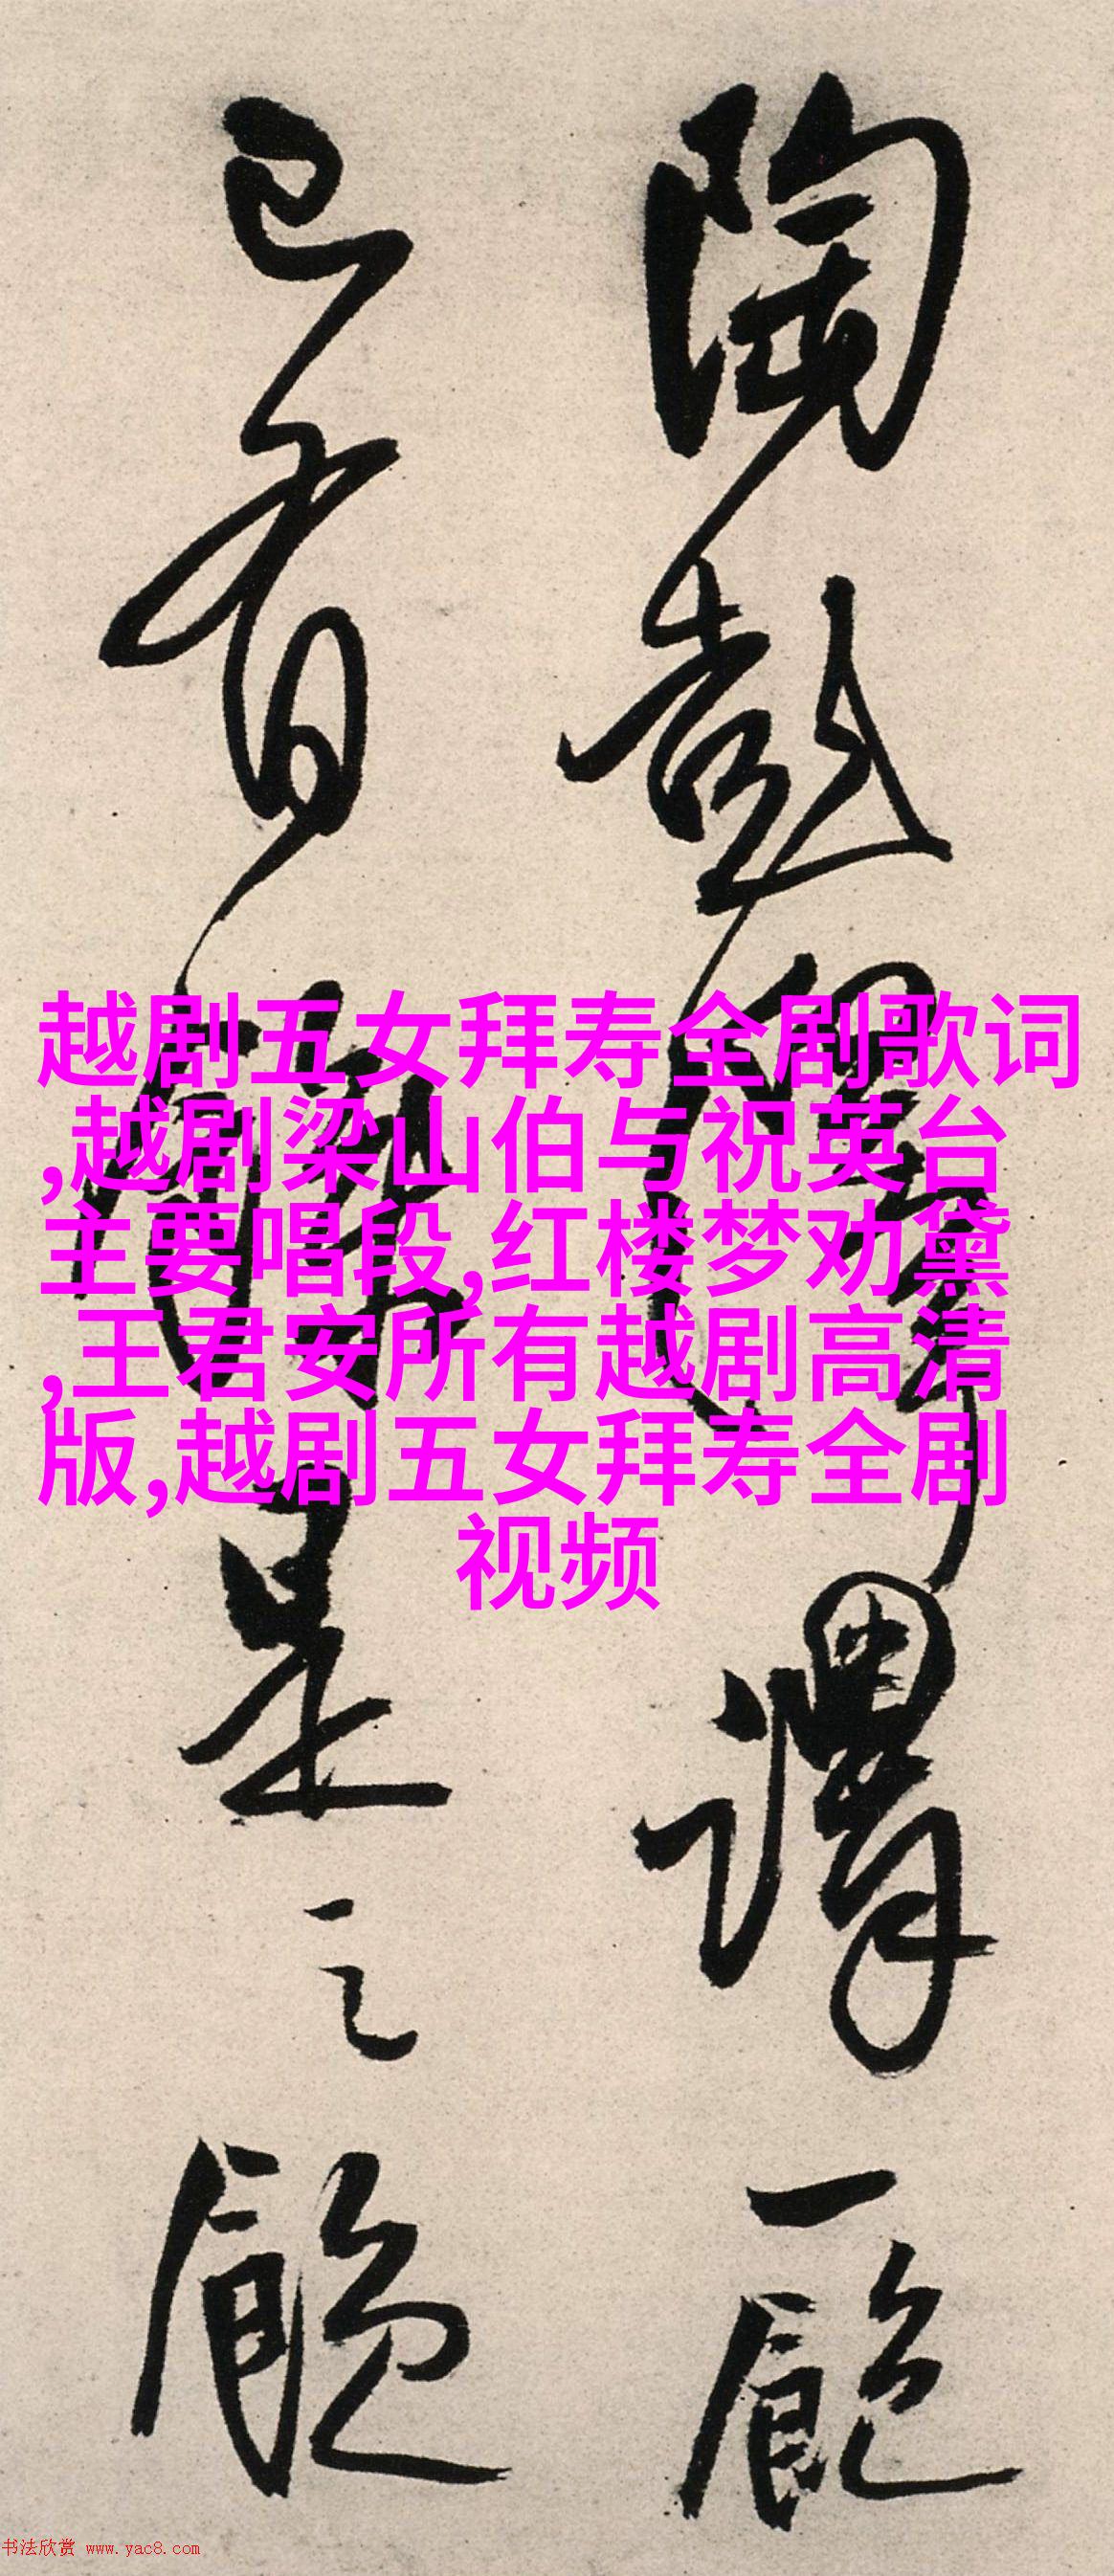 陶彭澤謂一飽
已有是之
越剧五女拜寿全剧歌词
,越剧梁山伯与祝英台
主要唱段,红楼梦劝黛
,王君安所有越剧高清
版,越剧五女拜寿全剧
视频
书法欣赏 www.yac8.com